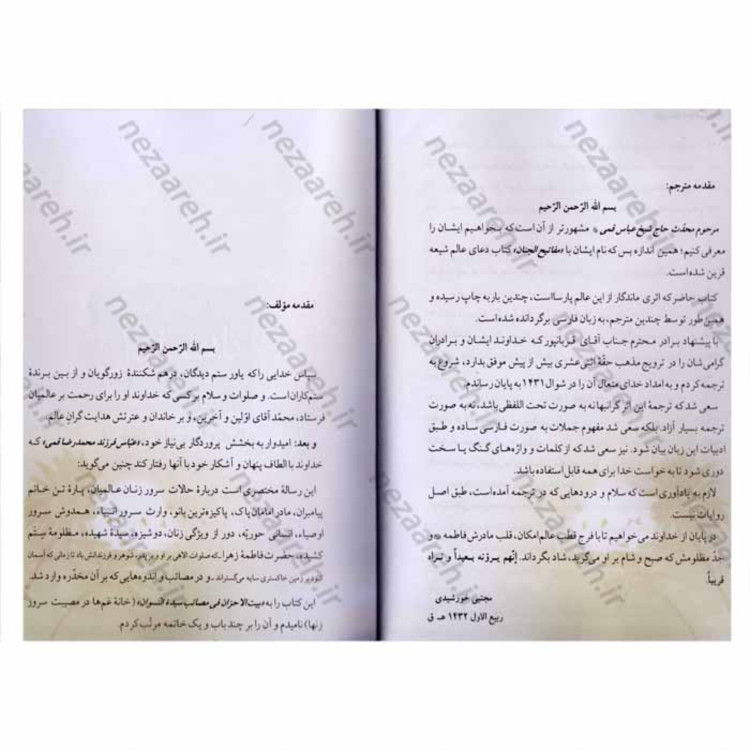 مقدمه مترجم:
بسم الله الرّحمن الرّحیم
مرحوم محدّث حاج شیخ عباس قمی مشهورتر از آن است که بخواهیم ایشان را
معرفی کنیم؛ همین اندازه بس که نام ایشان با «مفاتیح الجنان» کتاب دعای عالم شیعه
قرین شده است.
کتاب حاضر که اثری ماندگار از این عالم پارسا است، چندین بار به چاپ رسیده و
همین طور توسط چندین مترجم، به زبان فارسی برگردانده شده است.
با پیشنهاد برادر محترم جناب آقای قربانپور که خداوند ایشان و برادران
گرامی شان را در ترویج مذهب حقّهٔ اثنی عشری بیش از پیش موفق بدارد، شروع به
ترجمه کردم و به امداد خدای متعال آن را در شوال ۱۴۳۱ به پایان رساندم.
سعی شد که ترجمهٔ این اثر گرانبها نه به صورت تحت اللفظی باشد، نه به صورت
ترجمه بسیار آزاد بلکه سعی شد مفهوم جملات به صورت فارسی ساده و طبق
ادبیات این زبان بیان شود. نیز سعی شد که از کلمات و واژه‌های گنگ یا سخت
دوری شود تا به خواست خدا برای همه قابل استفاده باشد.
لازم به یادآوری است که سلام و درودهایی که در ترجمه آمده است، طبق اصل
روایات نیست.
در پایان از خداوند می‌خواهیم تا با فرج قطب عالم امکان، قلب مادرش فاطمه و
جدّ مظلومش که صبح و شام بر او می‌گرید، شاد بگرداند. إنّهم یرونه بعیداً و نراه
قریباً.
مجتبی خورشیدی
ربیع الاول ۱۴۳۲ هـ ق
مقدمه مؤلف:
بسم الله الرّحمن الرّحیم
سپاس خدایی را که یاور ستم دیدگان، درهم شکنندهٔ زورگویان و از بین برندهٔ
ستم‌کاران است. و صلوات و سلام بر کسی که خداوند او را برای رحمت بر عالمیان
فرستاد، محمّد آقای اوّلین و آخرین، و بر خاندان و عترتش هدایت گران عالم.
و بعد: امیدوار به بخشش پروردگار بی‌نیاز خود، «عبّاس فرزند محمد رضا قمی» که
خداوند با الطاف پنهان و آشکار خود با آنها رفتار کند چنین می‌گوید:
این رسالهٔ مختصری است دربارهٔ حالات سرور زنان عالمیان، پارهٔ تن خاتم
پیامبران، مادر امامان پاک، پاکیزه‌ترین بانو، وارث سرور انبیاء، همدوش سرور
اوصیاء، انسانی حوریّه، دور از ویژگی زنان، دوشیزه، سیدهٔ شهیده، مظلومهٔ ستم
کشیده، حضرت فاطمهٔ زهرا -که صلوات الاهی بر او و بر پدر، شوهر و فرزندانش باد تا زمانی که آسمان
کبود بر زمین خاکستری سایه می‌گستراند- و در مصائب و اندوه‌هایی که بر آن مخدّره وارد شد.
این کتاب را به «بیت الاحزان فی مصائب سیدة النسوان» (خانهٔ غم‌ها در مصیبت سرور
زنها) نامیدم و آن را بر چند باب و یک خاتمه مرتّب کردم.
nezaareh.ir
nezaareh.ir
nezaareh.ir
nezaareh.ir
nezaareh.ir
nezaareh.ir
nezaareh.ir
nezaareh.ir
nezaareh.ir
nezaareh.ir
nezaareh.ir
nezaareh.ir